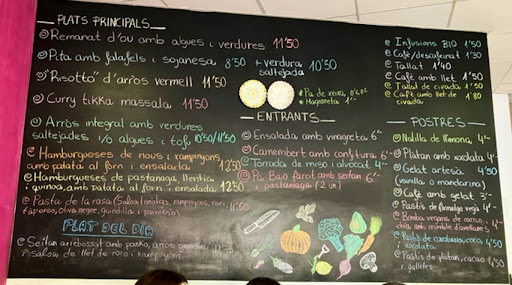 PLATS PRINCIPALS
Remanat d'ou amb algues i verdures 11'50
Pita amb falafels i sojanesa 8'50 + verdura saltejada 10'50
"Risotto" d'arros vermell 11'50
Curry tikka massala 11'50
Arròs integral amb verdures
saltejades i/o algues i tofu 10'50/11'50
Hamburgueses de nous i xampinyons
amb patata al forn i ensalada 12'50
Hamburgueses de pastanaga, llenties
i quinoa, amb patata al forn i ensalada 12'50
Pasta de la rasa (Salsa tomàquet, xampinyons,
tàperes, oliva negra, guindilla i parmesà) 11'50
PLAT DEL DIA
Seitan arrebossat amb panko, arròs
i salsa de llet de coco i xampinyons
Pa de xeixa
Hogasseta 1'-
ENTRANTS
Ensalada amb vinagreta 6'-
Camembert amb confitura 6'-
Torrada de miso i alvocat 4'-
Pa Bao farcit amb seitan 6'-
i pastanaga 2 un.)
Infusions BIO 1'50
Café/descafeinat 1'30
Tallat 1'40
Café amb llet 1'50
Tallat de civada 1'50
Café amb llet de 1'80
civada
POSTRES
Natilla de llimona 4'-
Platan amb xocolata 4'-
Gelat artesà 4'50
(vainilla o mandarina)
Café amb gelat 3'-
Pastís de formatge vegà 4'-
Bomba vegana de
chia, amb crumble d'avellanes
Pastís de carabassa, coco 4'50
i xocolata
Pastís de platan, cacao 4'50
i galletes